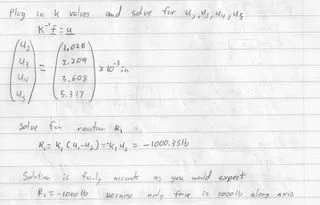 Plug in k values and solve for u₂, u₃, u₄, u₅
K⁻¹f = u
(u₂ u₃ u₄ u₅) = (1.026 2.209 3.608 5.317) × 10⁻³ in
Solve for reaction R₁
R₁ = k₁(u₁-u₂) = -k₁u₂ = -1000.35 lb
Solution is fairly accurate as you would expect
R₁ = -1000 lb because only force is 1000 lb along axis